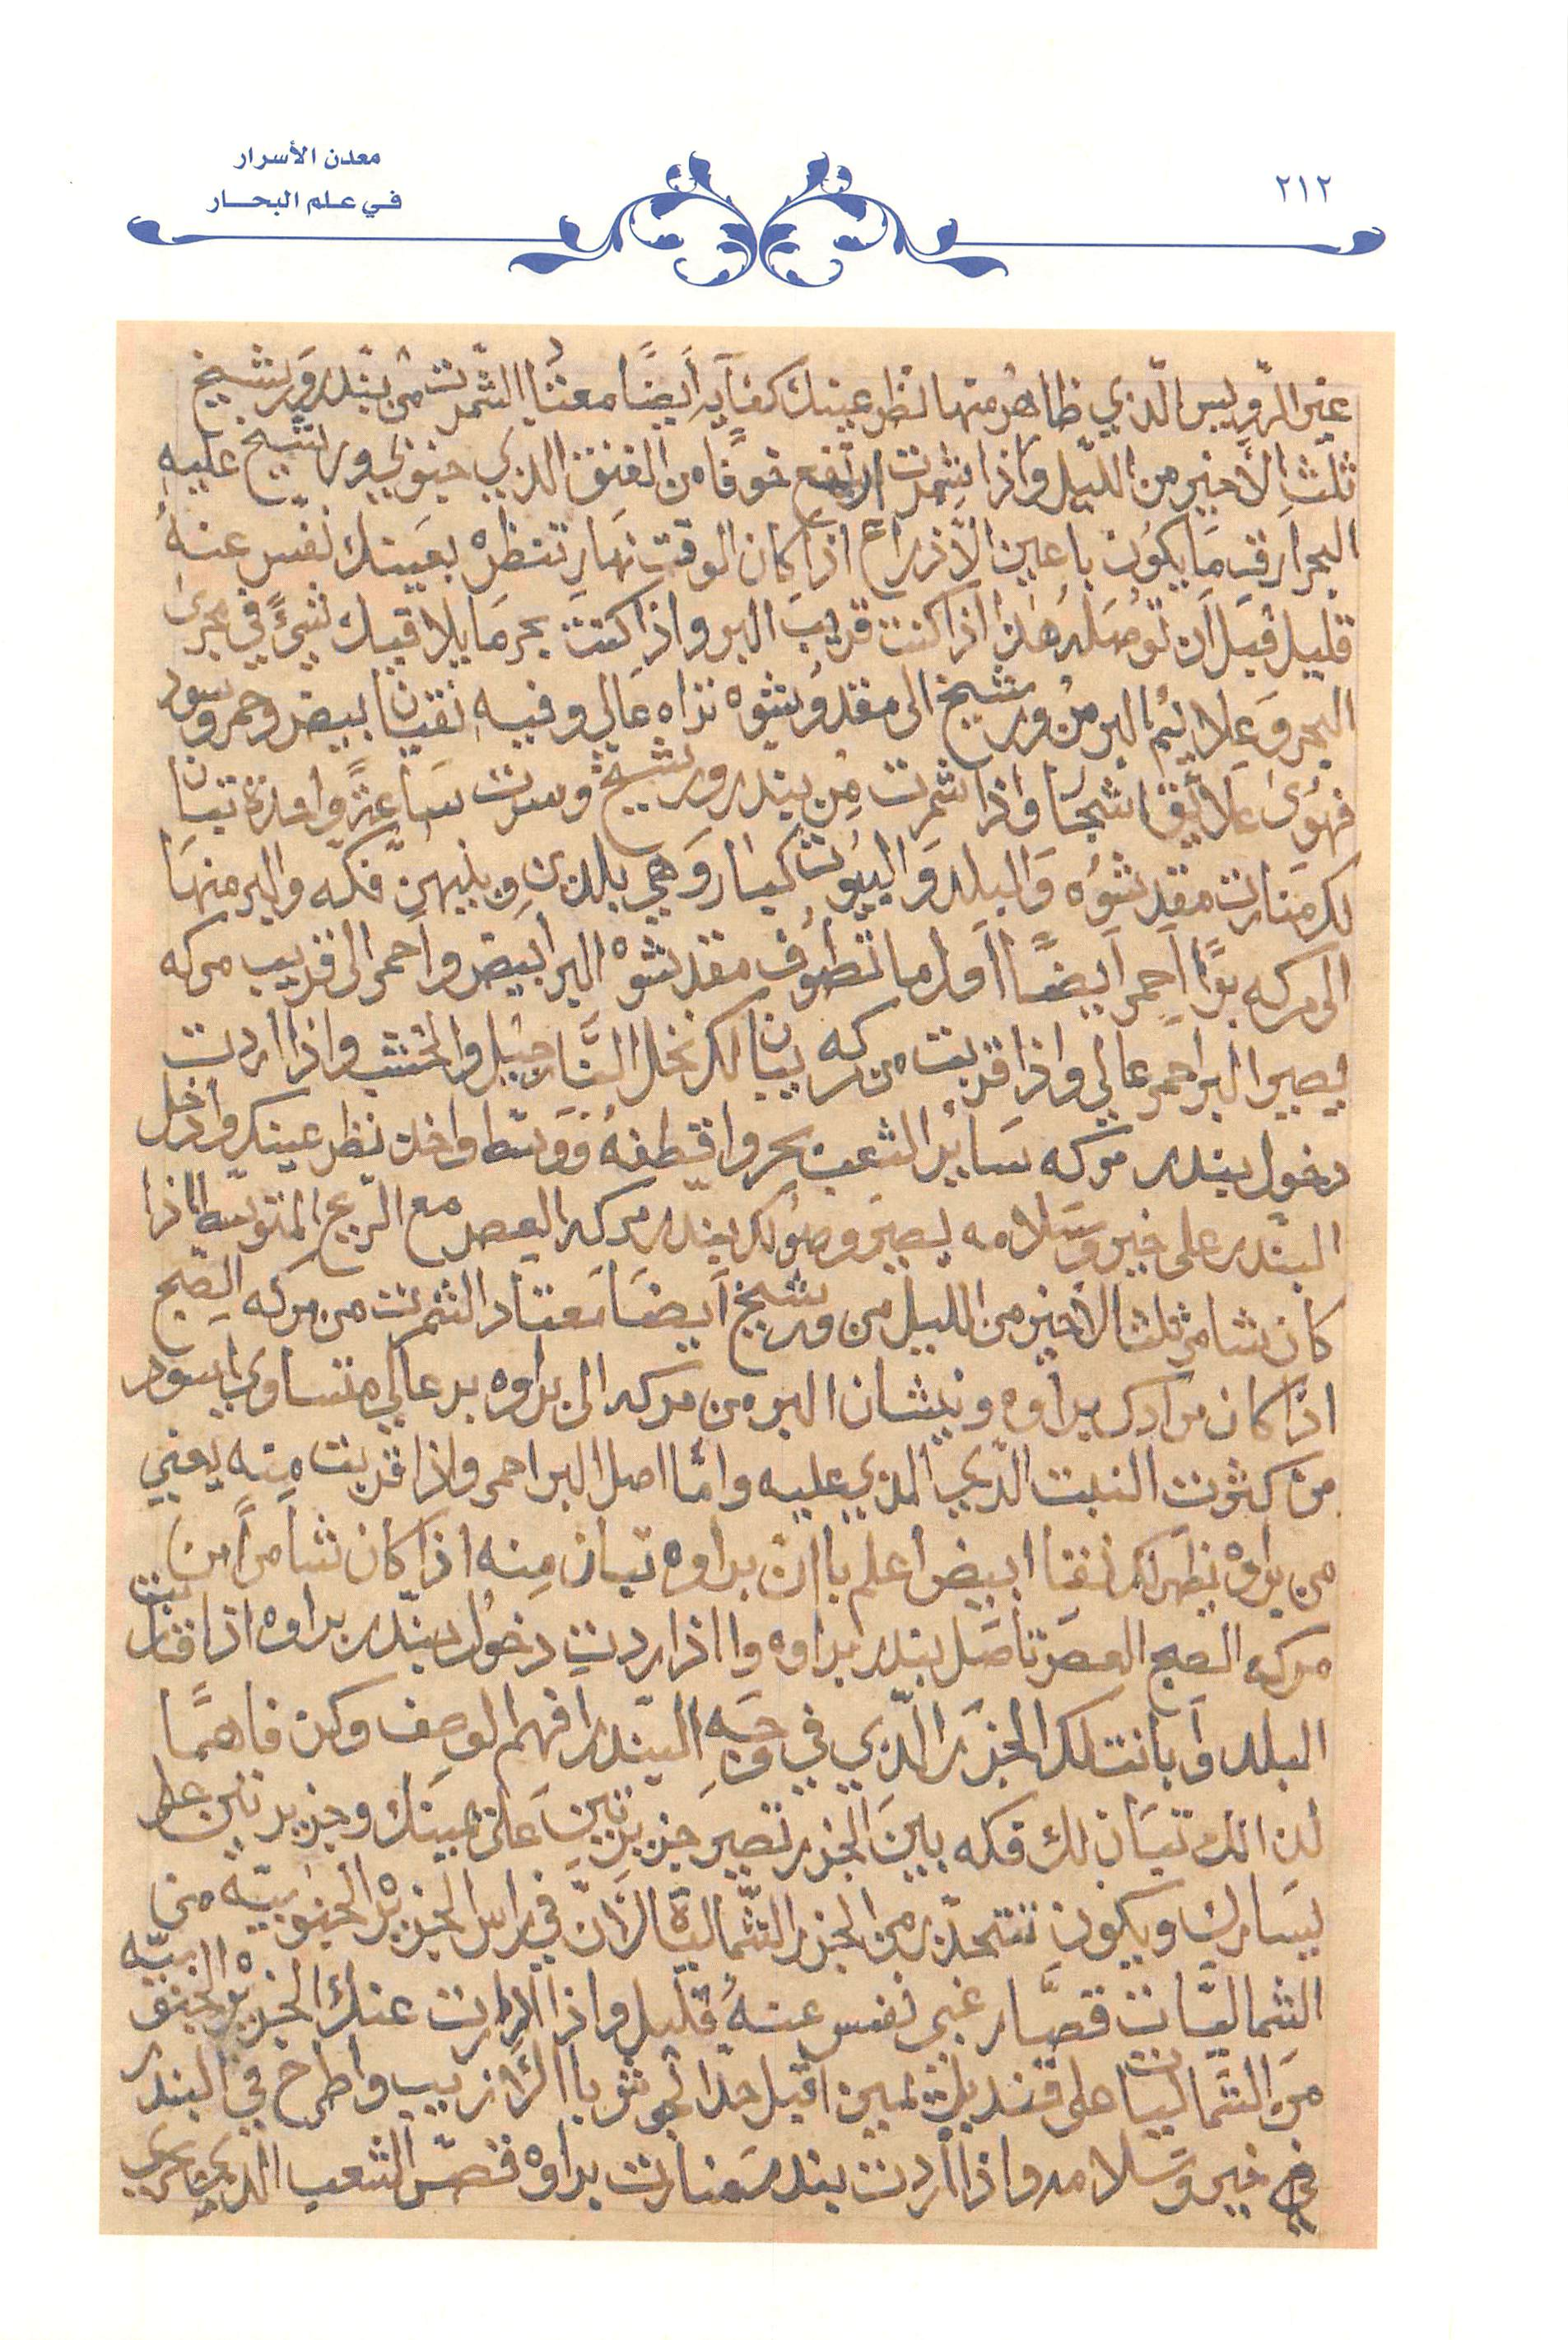 معدن الأسرار
في علم البحار
٢١٢
غير الرويس الّذي ظاهر منها نظر عينك كفايه أيضًا معتاد الشّمرت من بندر ورشيخ
ثلث الأخير من الليل واذا شمرت ارتفع خوفًا من الفنق الذي جنوبي ورشيخ عليه
البحر ارقب ما يكون باعين الأذرع اذا كان الوقت نهار تنظره بعينك نفس عنه
قليل قبل ان توصله هذا اذا كنت قريب البر واذا كنت بحر ما يلاقيك شيءً في مجرى
البحر وعلايم البر من ورشيخ الى مقدشوه تراه عالي وفيه نقيان بيض وحمر وسود
فهوى علايق شجر واذا شمرت من بندر ورشيخ وسرت ساعةً واحدة تبان
لك منارت مقدشوه والبلد والبيوت كبار وهي بلدين وبنيهن فكه والبر منها
الى مركه برًّا احمر ايضًا اول ما تطوف مقدشوه البر ابيض واحمر الى قريب مركه
يصير البر احمر عالي واذا قربت من مركه يبان لك نخل النارجيل والخشب واذا اردت
دخول بندر مركه ساير الشعب بحر واقطفه ووسّط واخذ نظر عينك وادخل
البندر على خير وسلامه يصير وصولك بندر مركه العصر مع الريح المتوسط اذا
كان شامر ثلث الأخير من الليل من ورشيخ أيضًا معتاد الشمرت من مركه الصبح
اذا كان مرادك براوه ونيشان البر من مركه الى براوه بر عالي متساوي اسود
من كثرت النبت الّذي الذي عليه وامّا اصل البر احمر واذا قربت منه يعني
من براوه يظهر لك نقا ابيض اعلم باان براوه تبان منه اذا كان شامرًا من
مركه الصبح العصر تاصل بندر براوه واذا اردت دخول بندر براوه اذا قاربت
البلد وبانت لك الجزر الّذي في وجه البندر افهم الوصف وكن فاهمًا
لذالك تبان لك فكه بين الجزر تصير جزيرتين على يمينك وجزيرتين على
يسارك ويكون تتحذّر من الجزر الشّمالية لأنّ في راس الجزيره الجنوبيّه من
الشماليات قصّار غبي نفس عنهُ قليل واذا دارت عنك الجزيره الجنوبيّه
من الشماليات على قنديلة يمين اقبل حدّا لجوش باالأزيب واطرح في البندر
في خير وسلامه واذا اردت بندر منارت براوه فنصّ الشعب الذي بحري